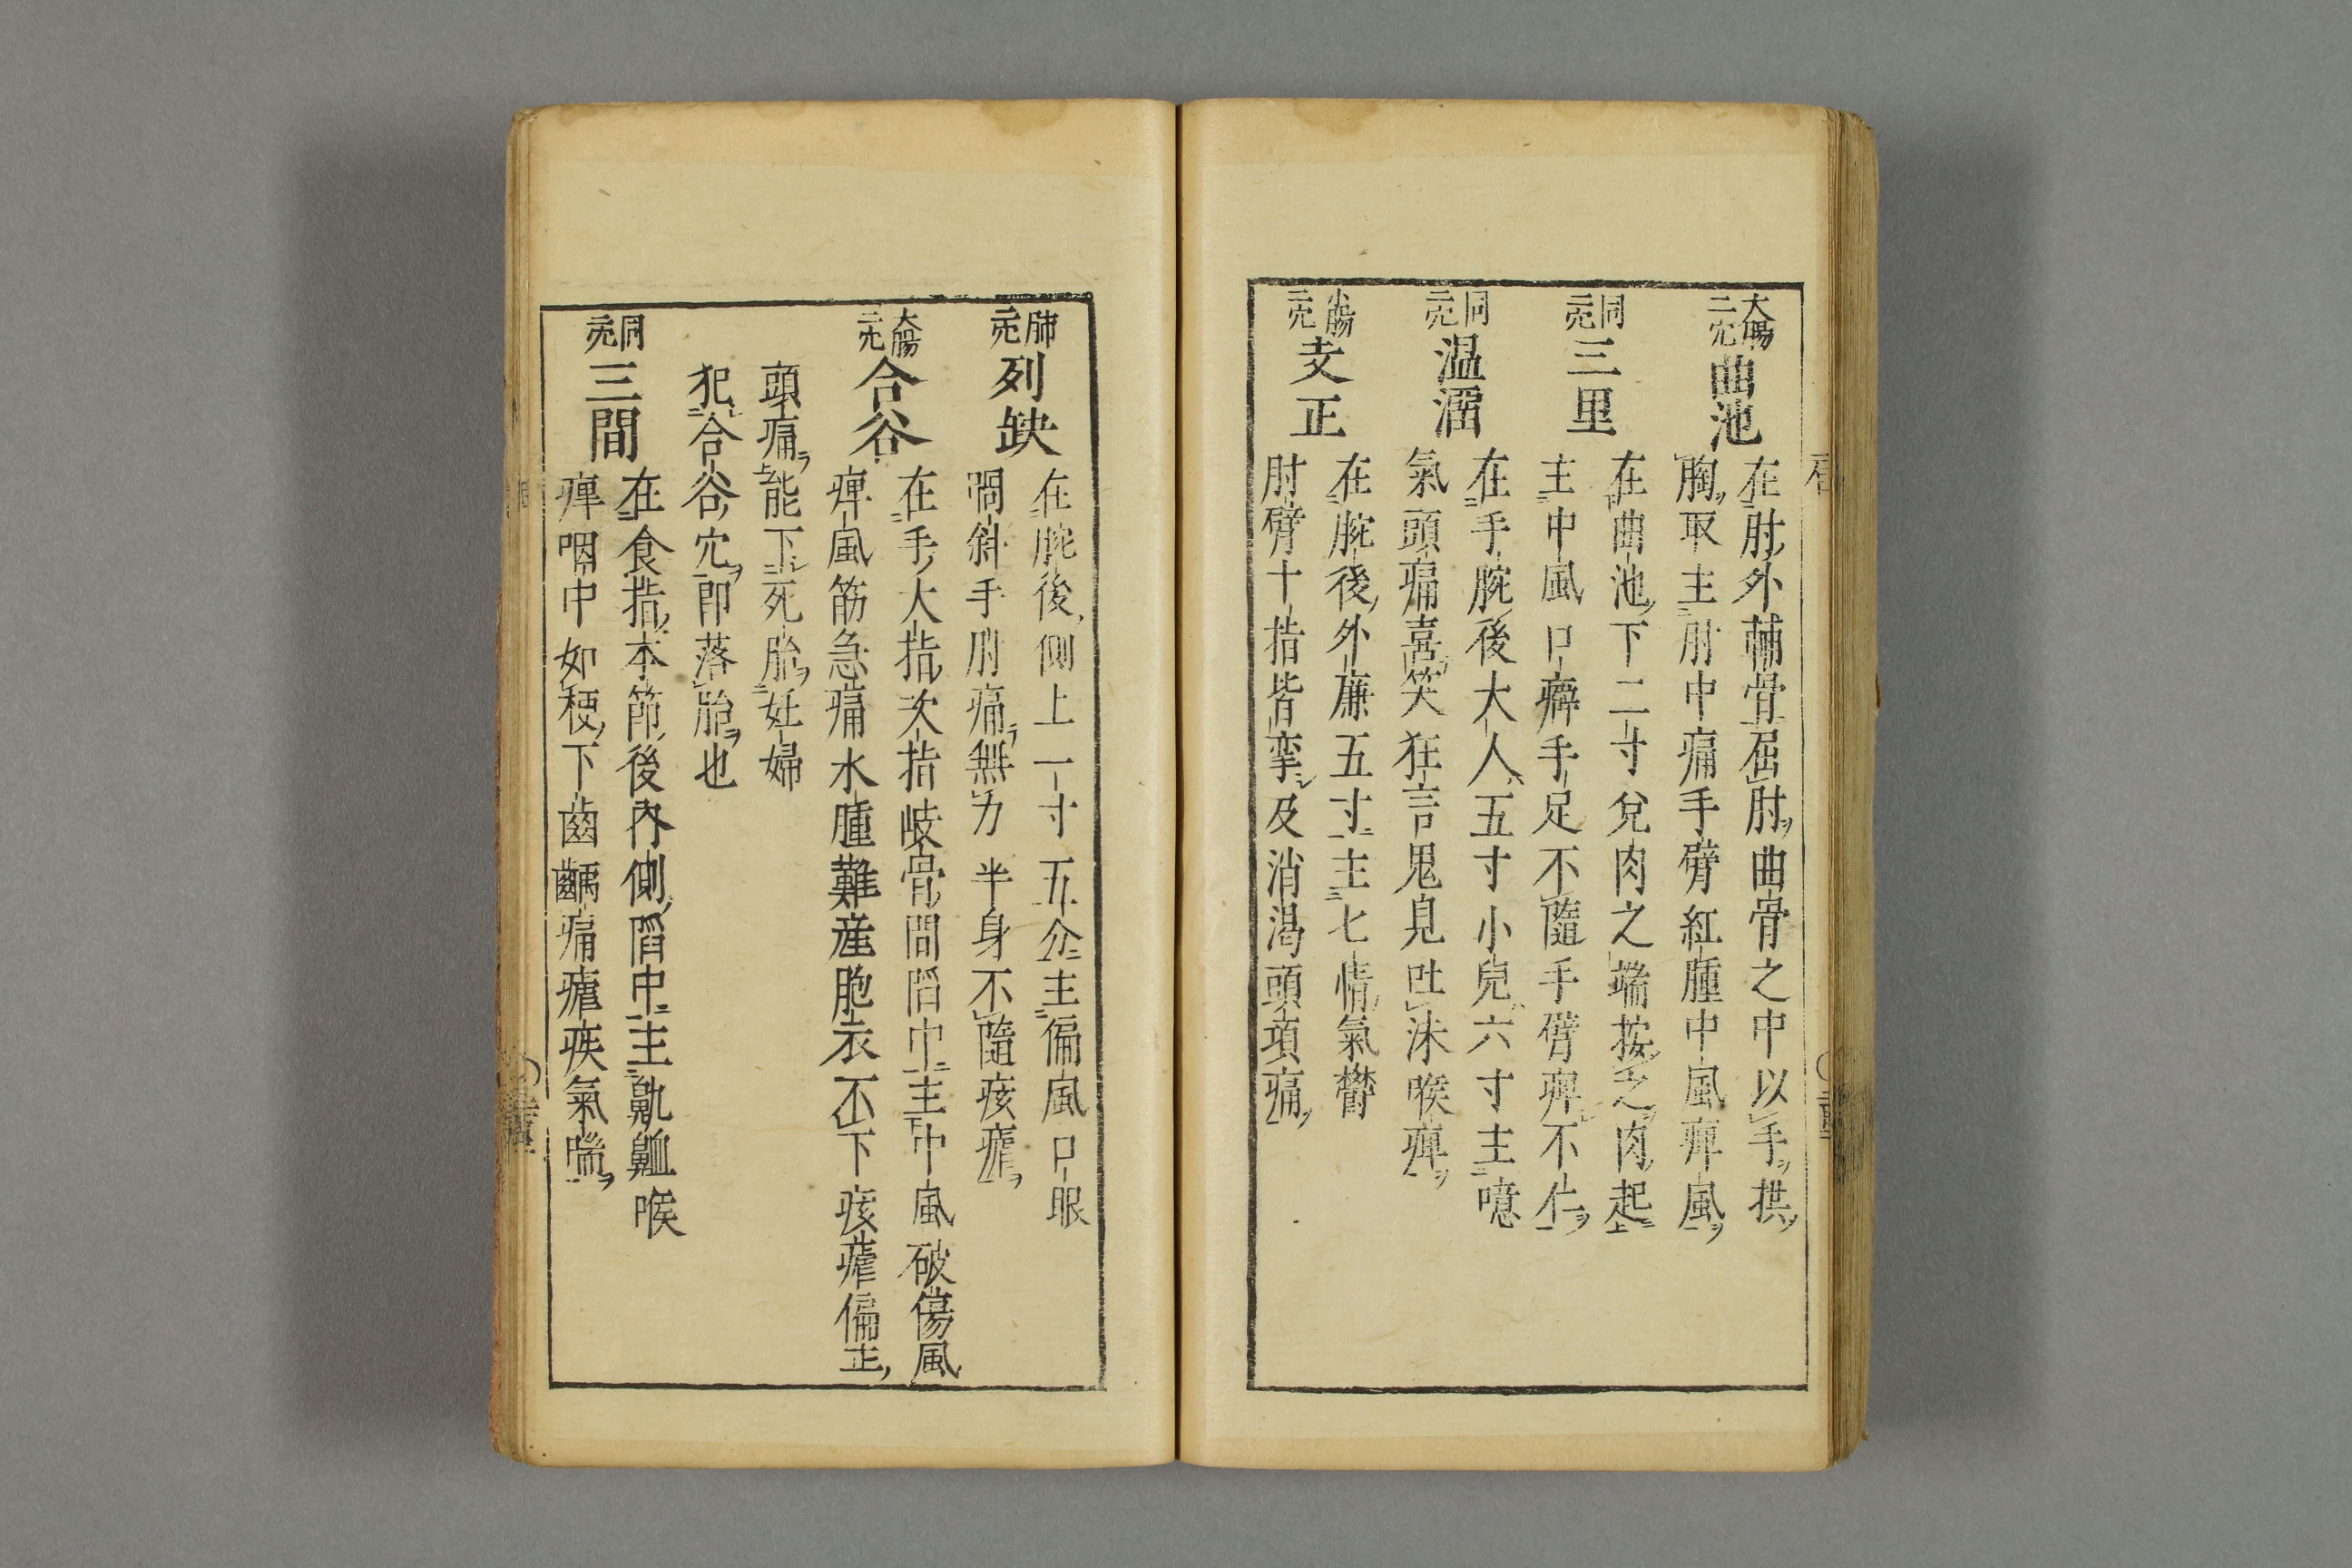 大腸二穴 曲池
在肘外輔骨屈肘曲骨之中以手拱
胸取主肘中痛手臂紅腫中風痺風
同二穴 三里
在曲池下二寸兌肉之端按之肉起
主中風口癖手足不隨手臂痺不仁
同二穴 温溜
在手腕後大人五寸小兒六寸主噫
氣頭痛喜笑狂言鬼見吐沫喉痺
小腸二穴 支正
在腕後外廉五寸主七情氣欝
肘臂十指皆攣及消渇頭項痛
肺二穴 列缺
在腕後側上一寸五分主偏風口眼
喎斜手肘痛無力半身不隨痎瘧
大腸二穴 合谷
在手大指次指岐骨間陷中主中風破傷風
痺風筋急痛水腫難産胞衣不下痎瘧偏正
頭痛能下死胎妊婦
犯合谷穴即落胎也
同二穴 三間
在食指本節後内側陷中主鼽衂喉
痺咽中如梗下齒齲痛瘧疾氣喘